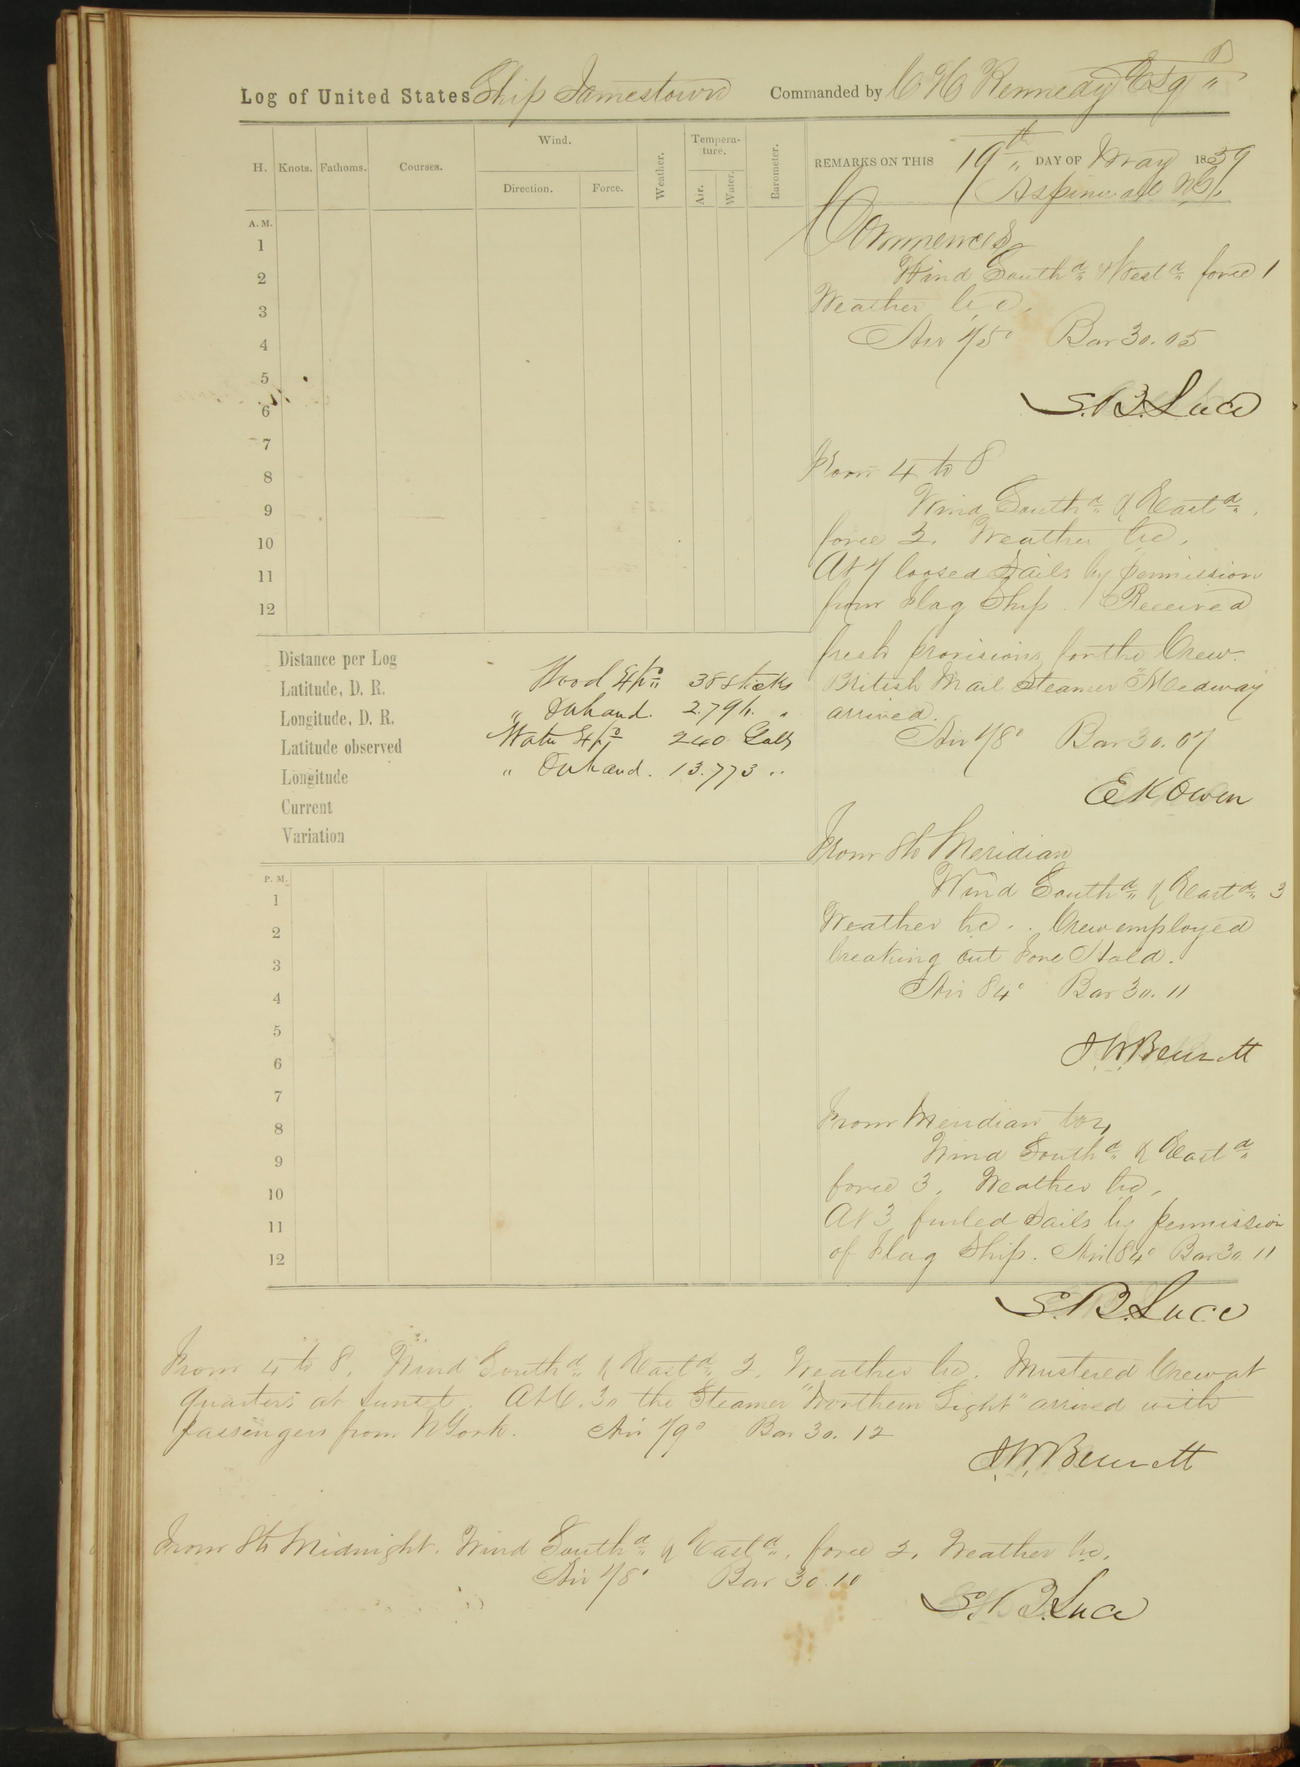 Log of United States Ship Jamestown Commanded by C H Kennedy Esqr
H. Knots. Fathoms. Courses. Wind. Direction. Force. Weather. Tempera-ture. Air. Water. Barometer.
REMARKS ON THIS 19th DAY OF May 1859
Aspinwall N.G.
A. M.
1
2
3
4
5
6
7
8
9
10
11
12
Commences
Wind Southd & Westd force 1
Weather b.c.
Air 75° Bar 30.05
S. B. Luce
From 4 to 8
Wind Southd & Eastd,
force 2. Weather b.c.
At 7 loosed Sails by permission
from Flag Ship. Received
fresh provisions for the Crew.
British Mail Steamer "Medway
arrived.
Air 78° Bar 30.07
E K Owen
Distance per Log
Latitude, D. R.
Longitude, D. R.
Latitude observed
Longitude
Current
Variation
Wood Expd 38 Sticks
" Onhand. 2.796. "
Water Expd 240 Galls
" Onhand. 13.773 "
From 8 to Meridian
Wind Southd & Eastd 3
Weather b.c. Crew employed
breaking out Fore Hold.
Air 84° Bar 30.11
J. W. Bennett
P. M.
1
2
3
4
5
6
7
8
9
10
11
12
From Meridian to 4
Wind Southd & Eastd
force 3. Weather b.c.
At 3 furled Sails by permission
of Flag Ship. Air 84° Bar 30.11
S. B. Luce
From 4 to 8. Wind Southd & Eastd 2. Weather b.c. Mustered Crew at
quarters at sunset. At 6.30 the Steamer "Northern Light" arrived with
passengers from N York. Air 79° Bar 30.12
J. W. Bennett
From 8 to Midnight. Wind Southd & Eastd, force 2. Weather b.c.
Air 78° Bar 30.10
S. B. Luce